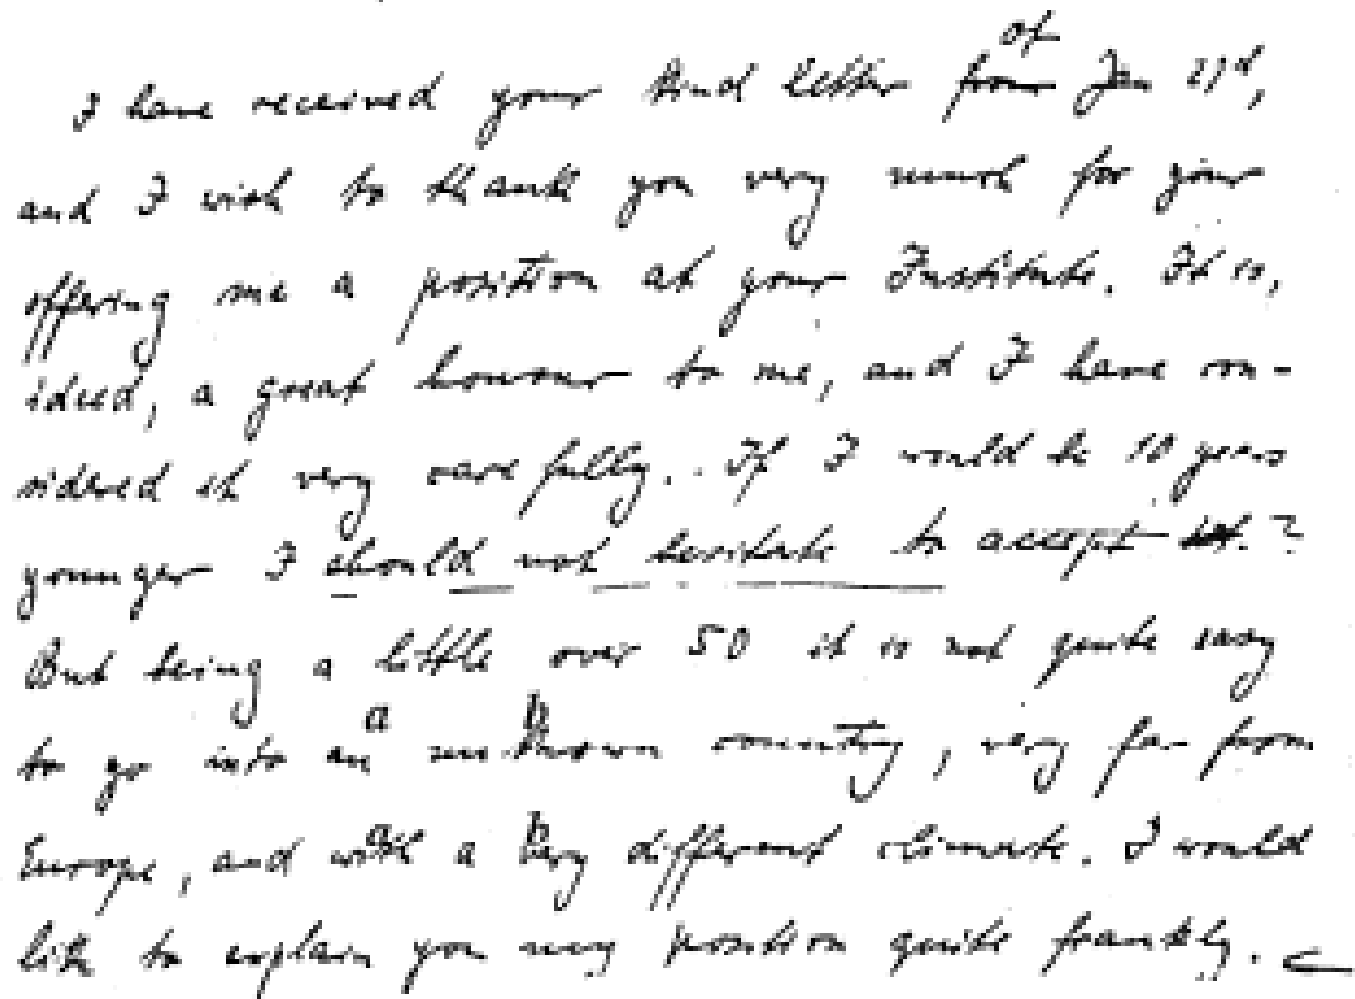 I have received your kind letter from of Jan 21d,
and I wish to thank you very much for your
offering me a position at your Institute. It is,
ideed, a great honour to me, and I have con-
sidered it very carefully. If I would be 10 years
younger I should not hesitate to accept it. ?
But being a little over 50 it is not quite easy
to go into an a unknown b country, very far from
Europe, and with a a very b different climate. I would
like to explain you my position quite frankly.